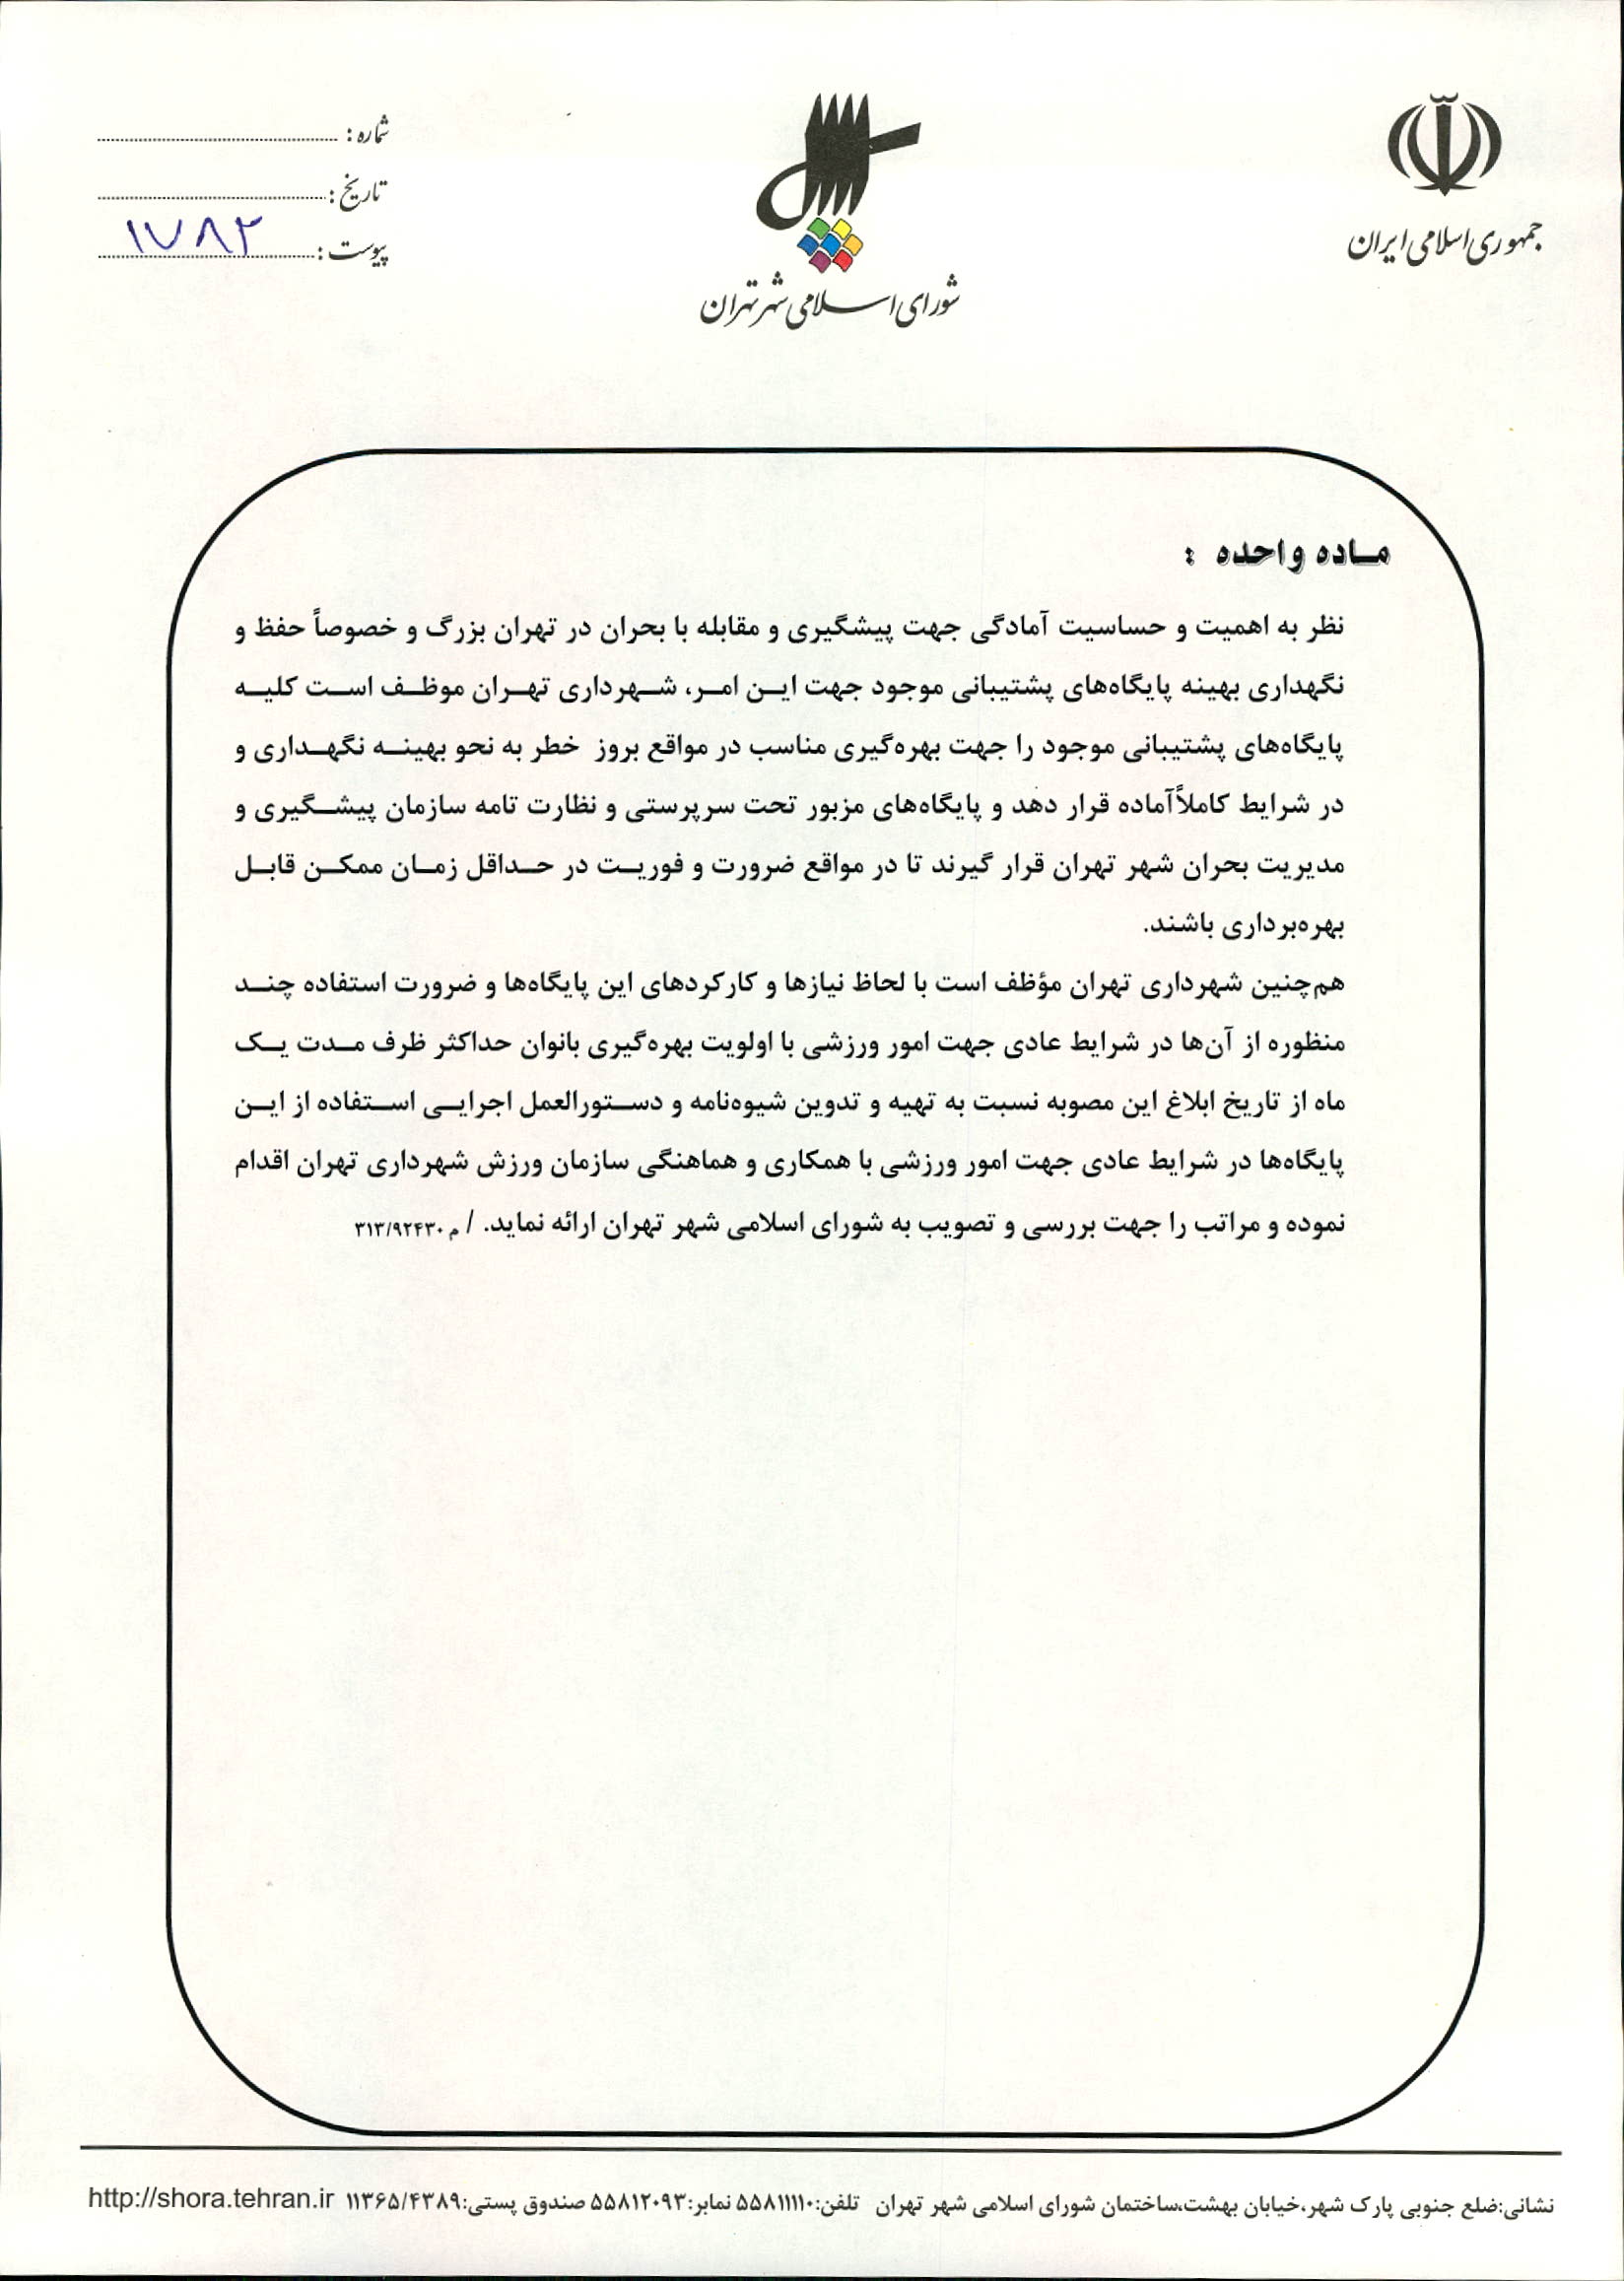 جمهوری اسلامی ایران
شورای اسلامی شهر تهران
شماره :
تاریخ :
پیوست : ۱۷۸۲
ماده واحده :
نظر به اهمیت و حساسیت آمادگی جهت پیشگیری و مقابله با بحران در تهران بزرگ و خصوصاً حفظ و
نگهداری بهینه پایگاه‌های پشتیبانی موجود جهت این امر، شهرداری تهران موظف است کلیه
پایگاه‌های پشتیبانی موجود را جهت بهره‌گیری مناسب در مواقع بروز خطر به نحو بهینه نگهداری و
در شرایط کاملاً آماده قرار دهد و پایگاه‌های مزبور تحت سرپرستی و نظارت تامه سازمان پیشگیری و
مدیریت بحران شهر تهران قرار گیرند تا در مواقع ضرورت و فوریت در حداقل زمان ممکن قابل
بهره‌برداری باشند.
هم‌چنین شهرداری تهران مؤظف است با لحاظ نیازها و کارکردهای این پایگاه‌ها و ضرورت استفاده چند
منظوره از آن‌ها در شرایط عادی جهت امور ورزشی با اولویت بهره‌گیری بانوان حداکثر ظرف مدت یک
ماه از تاریخ ابلاغ این مصوبه نسبت به تهیه و تدوین شیوه‌نامه و دستورالعمل اجرایی استفاده از این
پایگاه‌ها در شرایط عادی جهت امور ورزشی با همکاری و هماهنگی سازمان ورزش شهرداری تهران اقدام
نموده و مراتب را جهت بررسی و تصویب به شورای اسلامی شهر تهران ارائه نماید. / م ۳۱۳/۹۲۴۳۰
نشانی:ضلع جنوبی پارک شهر،خیابان بهشت،ساختمان شورای اسلامی شهر تهران تلفن:۵۵۸۱۱۱۱۰ نمابر:۵۵۸۱۲۰۹۳ صندوق پستی:۱۱۳۶۵/۴۳۸۹ http://shora.tehran.ir